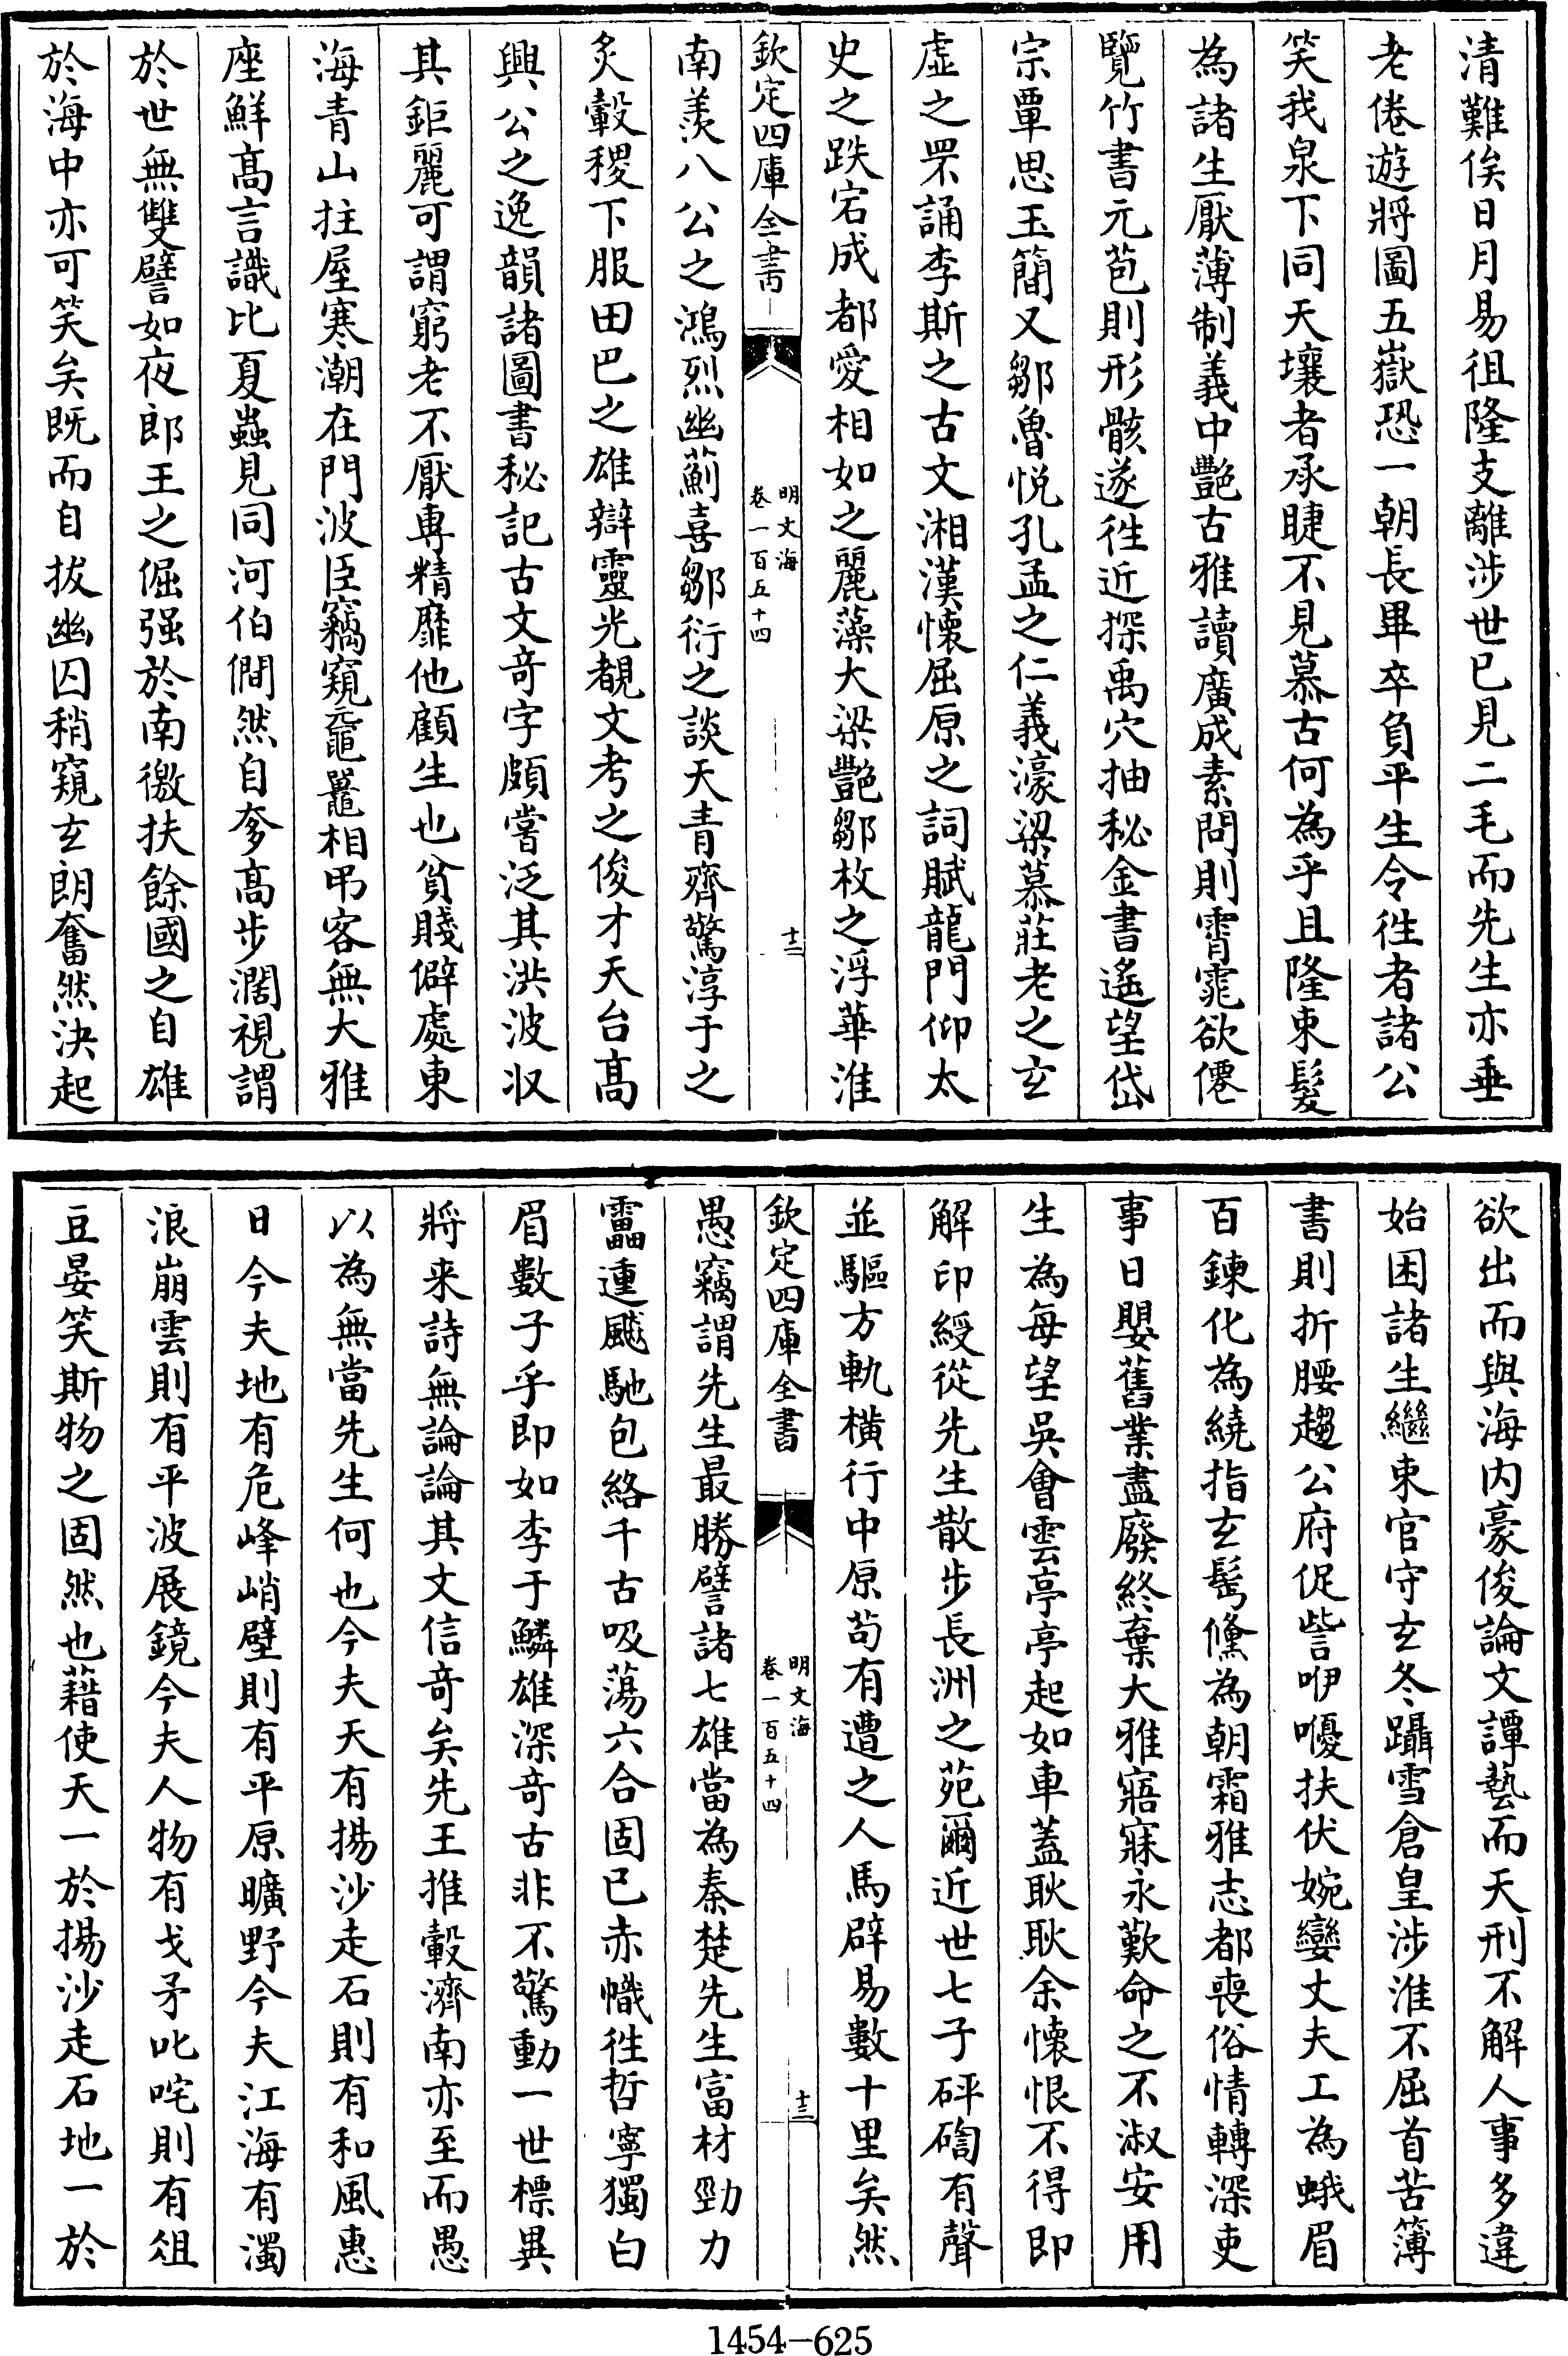 清難俟日月易徂隆支離涉世已見二毛而先生亦垂
老倦遊將圖五嶽恐一朝長畢卒負平生令徃者諸公
笑我泉下同天壤者承睫不見慕古何為乎且隆束髮
為諸生厭薄制義中艷古雅讀廣成素問則霄霓欲僊
覽竹書元苞則形骸遂徃近探禹穴抽秘金書遙望岱
宗覃思玉簡又鄒魯悅孔孟之仁義濠梁慕莊老之玄
虛之罘誦李斯之古文湘漢懷屈原之詞賦龍門仰太
史之跌宕成都愛相如之麗藻大梁艷鄒枚之浮華淮
欽定四庫全書
明文海
卷一百五十四
十二
南羨八公之鴻烈幽薊喜鄒衍之談天青齊驚淳于之
炙轂稷下服田巴之雄辯靈光覩文考之俊才天台高
興公之逸韻諸圖書秘記古文奇字頗嘗泛其洪波収
其鉅麗可謂窮老不厭專精靡他顧生也貧賤僻處東
海青山拄屋寒潮在門波臣竊窺黿鼉相弔客無大雅
座鮮高言識比夏蟲見同河伯僩然自奓高步濶視謂
於世無雙譬如夜郎王之倔强於南徼扶餘國之自雄
於海中亦可笑矣既而自拔幽囚稍窺玄朗奮然決起
欲出而與海內豪俊論文譚藝而天刑不解人事多違
始困諸生繼束官守玄冬躡雪倉皇涉淮不屈首苦簿
書則折腰趨公府促訾咿嚘扶伏婉孌丈夫工為蛾眉
百鍊化為繞指玄髩儵為朝霜雅志都喪俗情轉深吏
事日嬰舊業盡廢終棄大雅寤寐永歎命之不淑安用
生為每望吳會雲亭亭起如車蓋耿耿余懷恨不得即
解印綬從先生散步長洲之苑爾近世七子砰磤有聲
並驅方軌橫行中原苟有遭之人馬辟易數十里矣然
欽定四庫全書
明文海
卷一百五十四
十三
愚竊謂先生最勝譬諸七雄當為秦楚先生富材勁力
靁連飈馳包絡千古吸蕩六合固已赤幟徃哲寧獨白
眉數子乎即如李于鱗雄深奇古非不驚動一世標異
將来詩無論論其文信奇矣先王推轂濟南亦至而愚
以為無當先生何也今夫天有揚沙走石則有和風惠
日今夫地有危峰峭壁則有平原曠野今夫江海有濁
浪崩雲則有平波展鏡今夫人物有戈矛叱咤則有俎
豆晏笑斯物之固然也藉使天一於揚沙走石地一於
1454-625